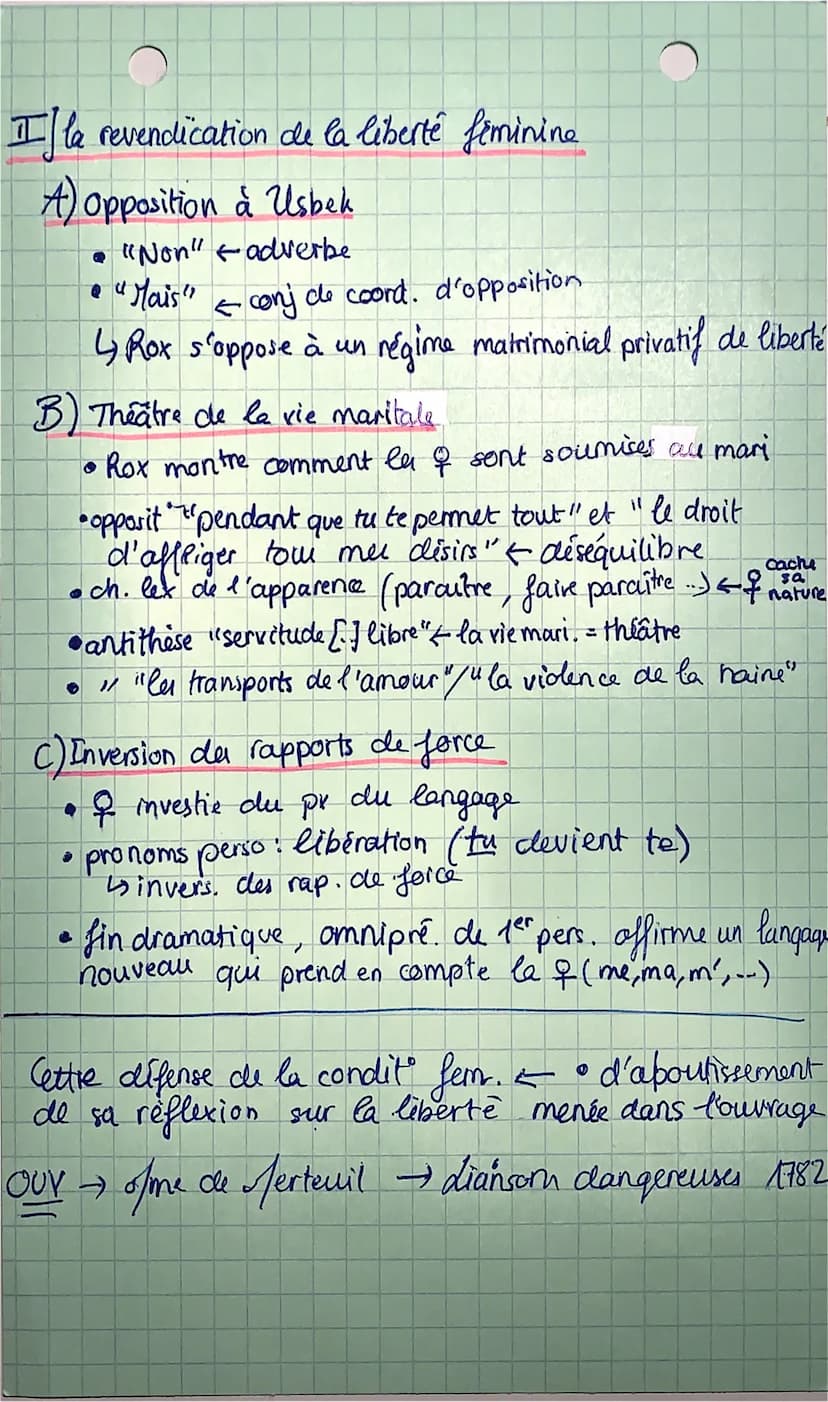 II] la revendication de la liberté féminine
A) Opposition à Usbek
• "Non" ← adverbe
• "Mais" ← conj de coord. d'opposition
↳ Rox s'oppose à un régime matrimonial privatif de liberté
B) Théâtre de la vie maritale
• Rox montre comment les ♀ sont soumises au mari
• opposit° "pendant que tu te permet tout" et "le droit
d'affliger tous mes désirs" ← déséquilibre
• ch. lex de l'apparence (paraitre, faire paraître ...) ← ♀ cache sa nature
• antithèse "servitude [.] libre" ← la vie mari. = théâtre
• // "les transports de l'amour"/"la violence de la haine"
C) Inversion des rapports de force
• ♀ investie du pv du langage
• pronoms perso : libération (tu devient te)
↳ invers. des rap. de force
• fin dramatique, omnipré. de 1er pers. affirme un langage
nouveau qui prend en compte la ♀ (me, ma, m', ...)
Cette défense de la condit° fem. ← • d'aboutissement
de sa réflexion sur la liberté menée dans l'ouvrage
OUV → Mme de Merteuil → liaisons dangereuses 1782